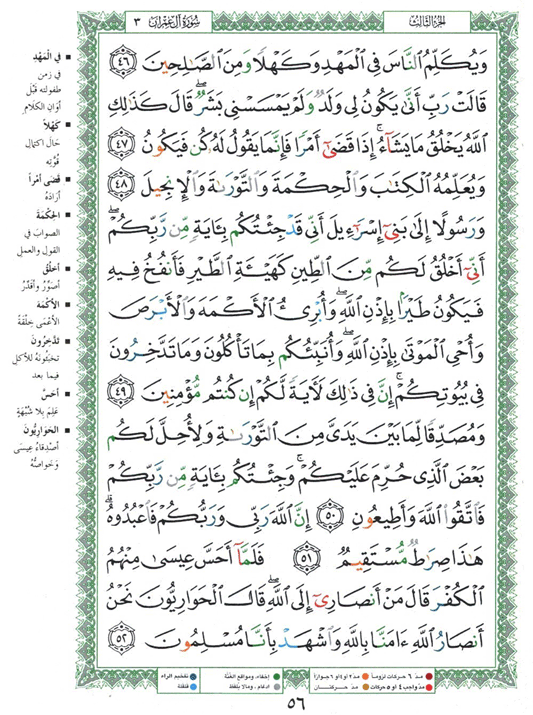 الجزء الثالث
سورة آل عمران ٣
وَيُكَلِّمُ النَّاسَ فِي الْمَهْدِ وَكَهْلًا وَمِنَ الصَّالِحِينَ ٤٦
قَالَتْ رَبِّ أَنَّىٰ يَكُونُ لِي وَلَدٌ وَلَمْ يَمْسَسْنِي بَشَرٌ ۖ قَالَ كَذَٰلِكِ
اللَّهُ يَخْلُقُ مَا يَشَاءُ ۚ إِذَا قَضَىٰ أَمْرًا فَإِنَّمَا يَقُولُ لَهُ كُن فَيَكُونُ ٤٧
وَيُعَلِّمُهُ الْكِتَابَ وَالْحِكْمَةَ وَالتَّوْرَىٰةَ وَالْإِنجِيلَ ٤٨
وَرَسُولًا إِلَىٰ بَنِي إِسْرَٰءِيلَ أَنِّي قَدْ جِئْتُكُم بِـَٔايَةٍ مِّن رَّبِّكُمْ ۖ
أَنِّي أَخْلُقُ لَكُم مِّنَ الطِّينِ كَهَيْـَٔةِ الطَّيْرِ فَأَنفُخُ فِيهِ
فَيَكُونُ طَيْرًا بِإِذْنِ اللَّهِ ۖ وَأُبْرِئُ الْأَكْمَهَ وَالْأَبْرَصَ
وَأُحْيِ الْمَوْتَىٰ بِإِذْنِ اللَّهِ ۖ وَأُنَبِّئُكُم بِمَا تَأْكُلُونَ وَمَا تَدَّخِرُونَ
فِي بُيُوتِكُمْ ۚ إِنَّ فِي ذَٰلِكَ لَآيَةً لَّكُمْ إِن كُنتُم مُّؤْمِنِينَ ٤٩
وَمُصَدِّقًا لِّمَا بَيْنَ يَدَيَّ مِنَ التَّوْرَىٰةِ وَلِأُحِلَّ لَكُم
بَعْضَ الَّذِي حُرِّمَ عَلَيْكُمْ ۚ وَجِئْتُكُم بِـَٔايَةٍ مِّن رَّبِّكُمْ
فَاتَّقُوا اللَّهَ وَأَطِيعُونِ ٥٠ إِنَّ اللَّهَ رَبِّي وَرَبُّكُمْ فَاعْبُدُوهُ ۗ
هَٰذَا صِرَٰطٌ مُّسْتَقِيمٌ ٥١ فَلَمَّا أَحَسَّ عِيسَىٰ مِنْهُمُ
الْكُفْرَ قَالَ مَنْ أَنصَارِي إِلَى اللَّهِ ۖ قَالَ الْحَوَارِيُّونَ نَحْنُ
أَنصَارُ اللَّهِ ءَامَنَّا بِاللَّهِ وَاشْهَدْ بِأَنَّا مُسْلِمُونَ ٥٢
في الْمَهْدِ
في زمن
طفولته قَبْلَ
أوان الكلام
كَهْلاً
حال اكتمال
قُوَّتِه
قَضَى أمْراً
أرَادَهُ
الحِكْمَةَ
الصوابَ في
القول والعمل
أخْلُقُ
أصَوِّرُ وأقَدِّرُ
الأكْمَهَ
الأعْمَى خِلْقَةً
تَدَّخِرُونَ
تخبّئونَهُ للأكل
فيما بعد
أحَسَّ
عَلِمَ بِلا شُبْهَةٍ
الحَوَارِيُّونَ
أصْدِقاءُ عِيسَى
وَخَوَاصُّهُ
مدّ ٦ حركات لزوماً
مدّ ٢ أو ٤ أو ٦ جوازاً
إخفاء، ومواقع الغُنَّة
تفخيم الراء
مدّ واجب ٤ أو ٥ حركات
مدّ حركتان
ادغام، ومالا يُلفظ
قلقلة
٥٦